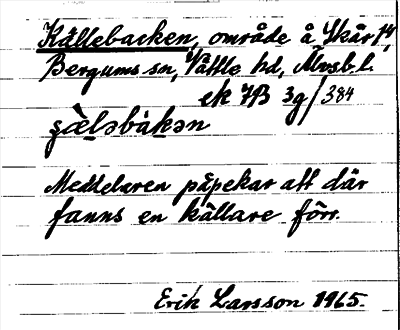 Källebacken, område å Skår 1⁴,
Bergums sn, Vättle hd, Älvsb. l.
ek 7B 3g/384
ʂæ̀ləbàkən
Meddelaren påpekar att där
fanns en källare förr.
Erik Larsson 1965.